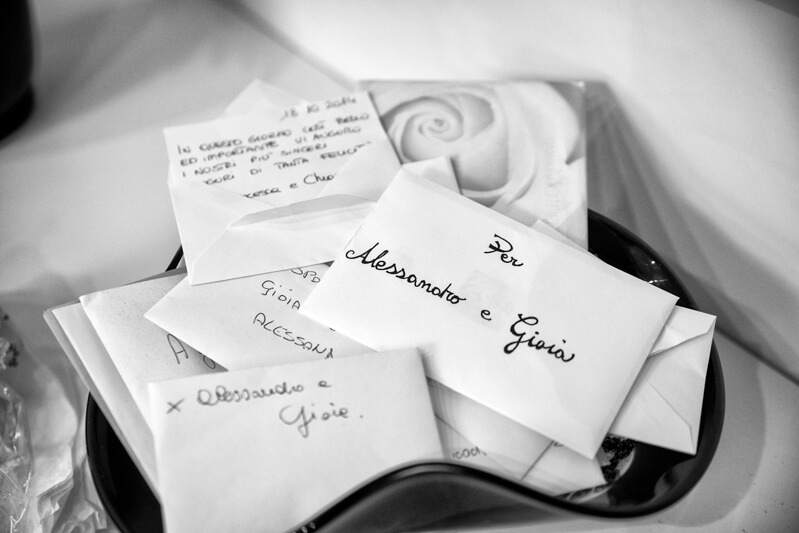 18 10 2014
IN QUESTO GIORNO COSÌ BELLO
ED IMPORTANTE VI AUGURO
I NOSTRI PIU' SINCERI
GURI DI TANTA FELICIT
Per
Alessandro e Gioia
GIOIA
ALESSAN
x Alessandro e
Gioia.